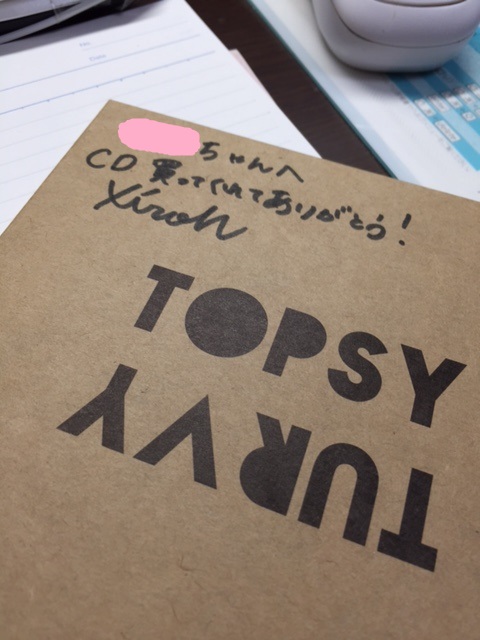 ちゃんへ
CD 買ってくれてありがとう!
Xiroh
TOPSY
TURVY